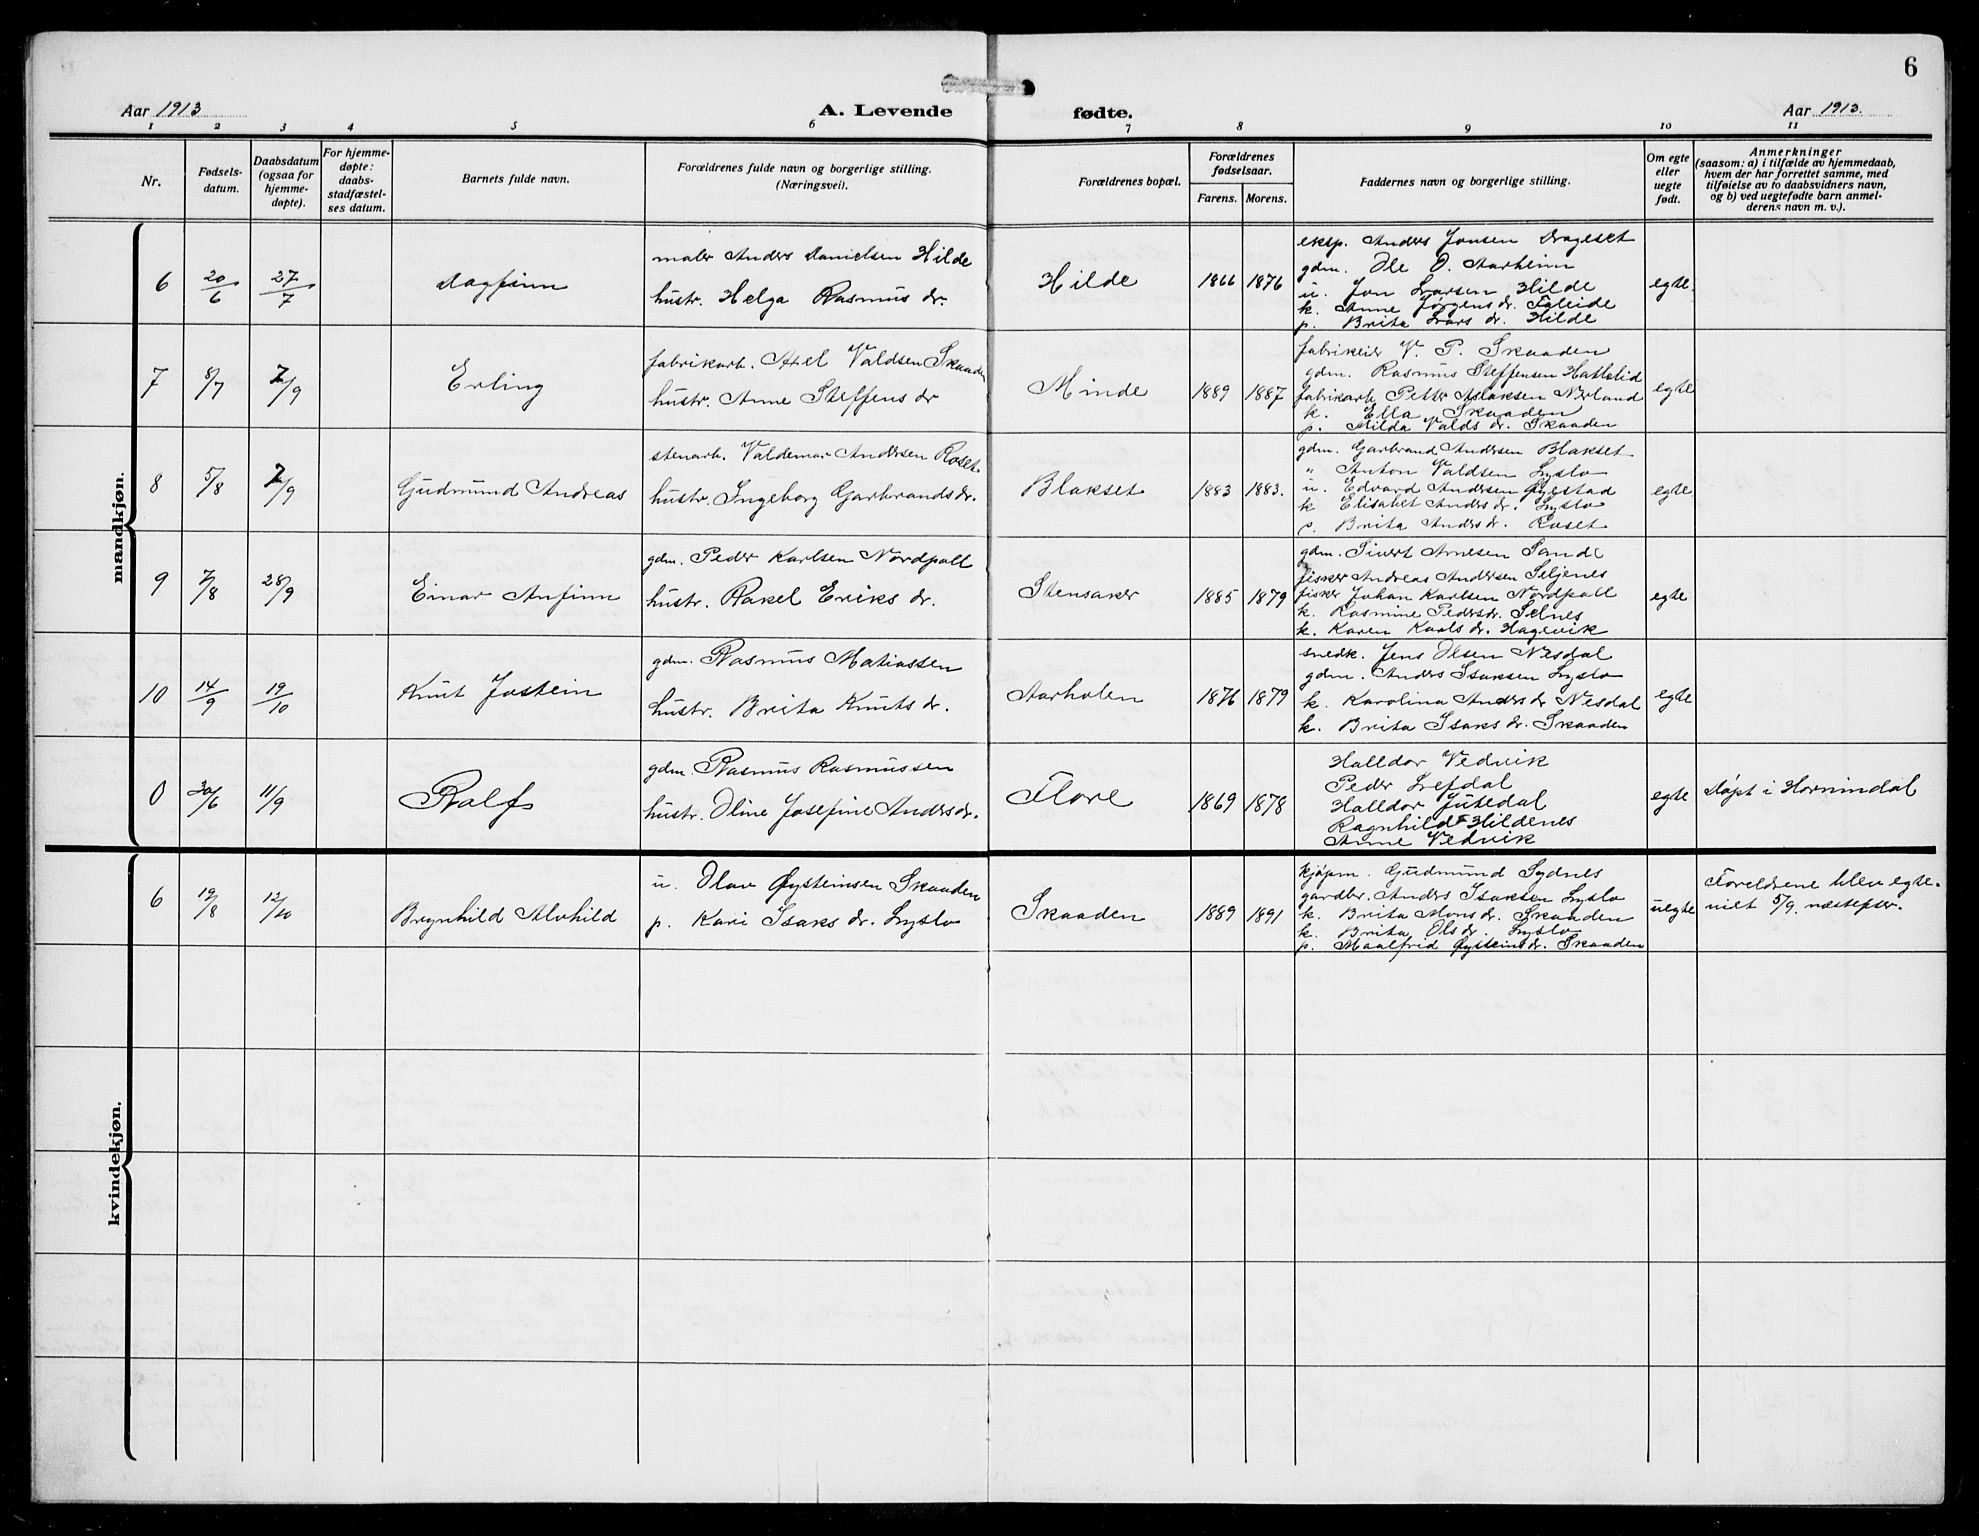 6
Aar 1913
A. Levende fødte.
Aar 1913.
1 2 3 4 5 6 7 8 9 10 11
Nr.
Fødsels-
datum.
Daabsdatum
(ogsaa for
hjemme-
døpte).
For hjemme-
døpte:
daabs-
stadfæstel-
ses datum.
Barnets fulde navn.
Forældrenes fulde navn og borgerlige stilling.
(Næringsvei).
Forældrenes bopæl.
Forældrenes
fødselsaar.
Farens. Morens.
Faddernes navn og borgerlige stilling.
Om egte
eller
uegte
født.
Anmerkninger
(saasom: a) i tilfælde av hjemmedaab,
hvem der har forrettet samme, med
tilføielse av to daabsvidners navn,
og b) ved uegtefødte barn anmel-
derens navn m. v.).
mandkjøn.
6 20/6 27/7 Dagfinn
maler Anders Danielsen Hilde
hustr. Helga Rasmus dr.
Hilde 1866 1876
eksp. Anders Jonsen Drageset
gdm. Ole O. Aarheim
u. Jon Larsen Hilde
k. Anne Jørgens dr. Faleide
p. Brita Lars dr. Hilde
egte
7 8/7 7/9 Erling
fabrikarb. Axel Valdsen Skaaden
hustr. Anne Steffens dr
Minde 1889 1887
fabrikeier V. P. Skaaden
gdm. Rasmus Steffensen Hattelid
fabrikarb Petter Aslaksen Nerland
k. Ella Skaaden
p. Hilda Valds dr. Skaaden
egte
8 5/8 7/9 Gudmund Andreas
stenarb. Valdemar Andersen Roset
hustr. Ingeborg Garbrands dr.
Blakset 1883 1883.
gdm. Garbrand Andersen Blakset
" Anton Valdsen Lyslo
u. Edvard Andersen Øyestad
k Elisabet Anders dr. Lyslo
p. Brita Anders dr. Roset
egte
9 7/8 28/9 Einar Anfinn
gdm. Peder Karlsen Nordpoll
hustr. Rakel Eriks dr.
Stensaker 1885 1879
gdm. Sivert Arnesen Sande
fisker Andreas Andersen Seljenes
fisker Johan Karlsen Nordpoll
k. Rasmine Pedersdr. Selnes
k. Karen Karls dr. Hagevik
egte
10 14/9 19/10 Knut Jostein
gdm. Rasmus Matiassen
hustr. Brita Knuts dr.
Aarholen 1876 1879
snedk. Jens Olsen Nesdal
gdm. Anders Isaksen Lyslo
k. Karolina Anders dr Nesdal
k. Brita Isaks dr. Skaaden
egte
0 30/6 11/9 Rolf
gdm. Rasmus Rasmussen
hustr. Oline Josefine Anders dr.
Flore 1869 1878
Halldor Vedvik
Peder Lefdal
Halldor Jutedal
Ragnhild Hildenes
Anne Vedvik
egte Døpt i Hornindal
kvindekjøn.
6 19/8 12/10 Brynhild Alvhild
u. Olav Øysteinsen Skaaden
p. Kari Isaks dr. Lyslo
Skaaden 1889 1891
kjøpm. Gudmund Sydnes
gardbr. Anders Isaksen Lyslo
k. Brita Mons dr. Skaaden
k. Brita Ols dr. Lyslo
p. Maalfrid Øysteins dr. Skaaden
uegte
Foreldrene blev egte-
viet 5/9. næstefter.